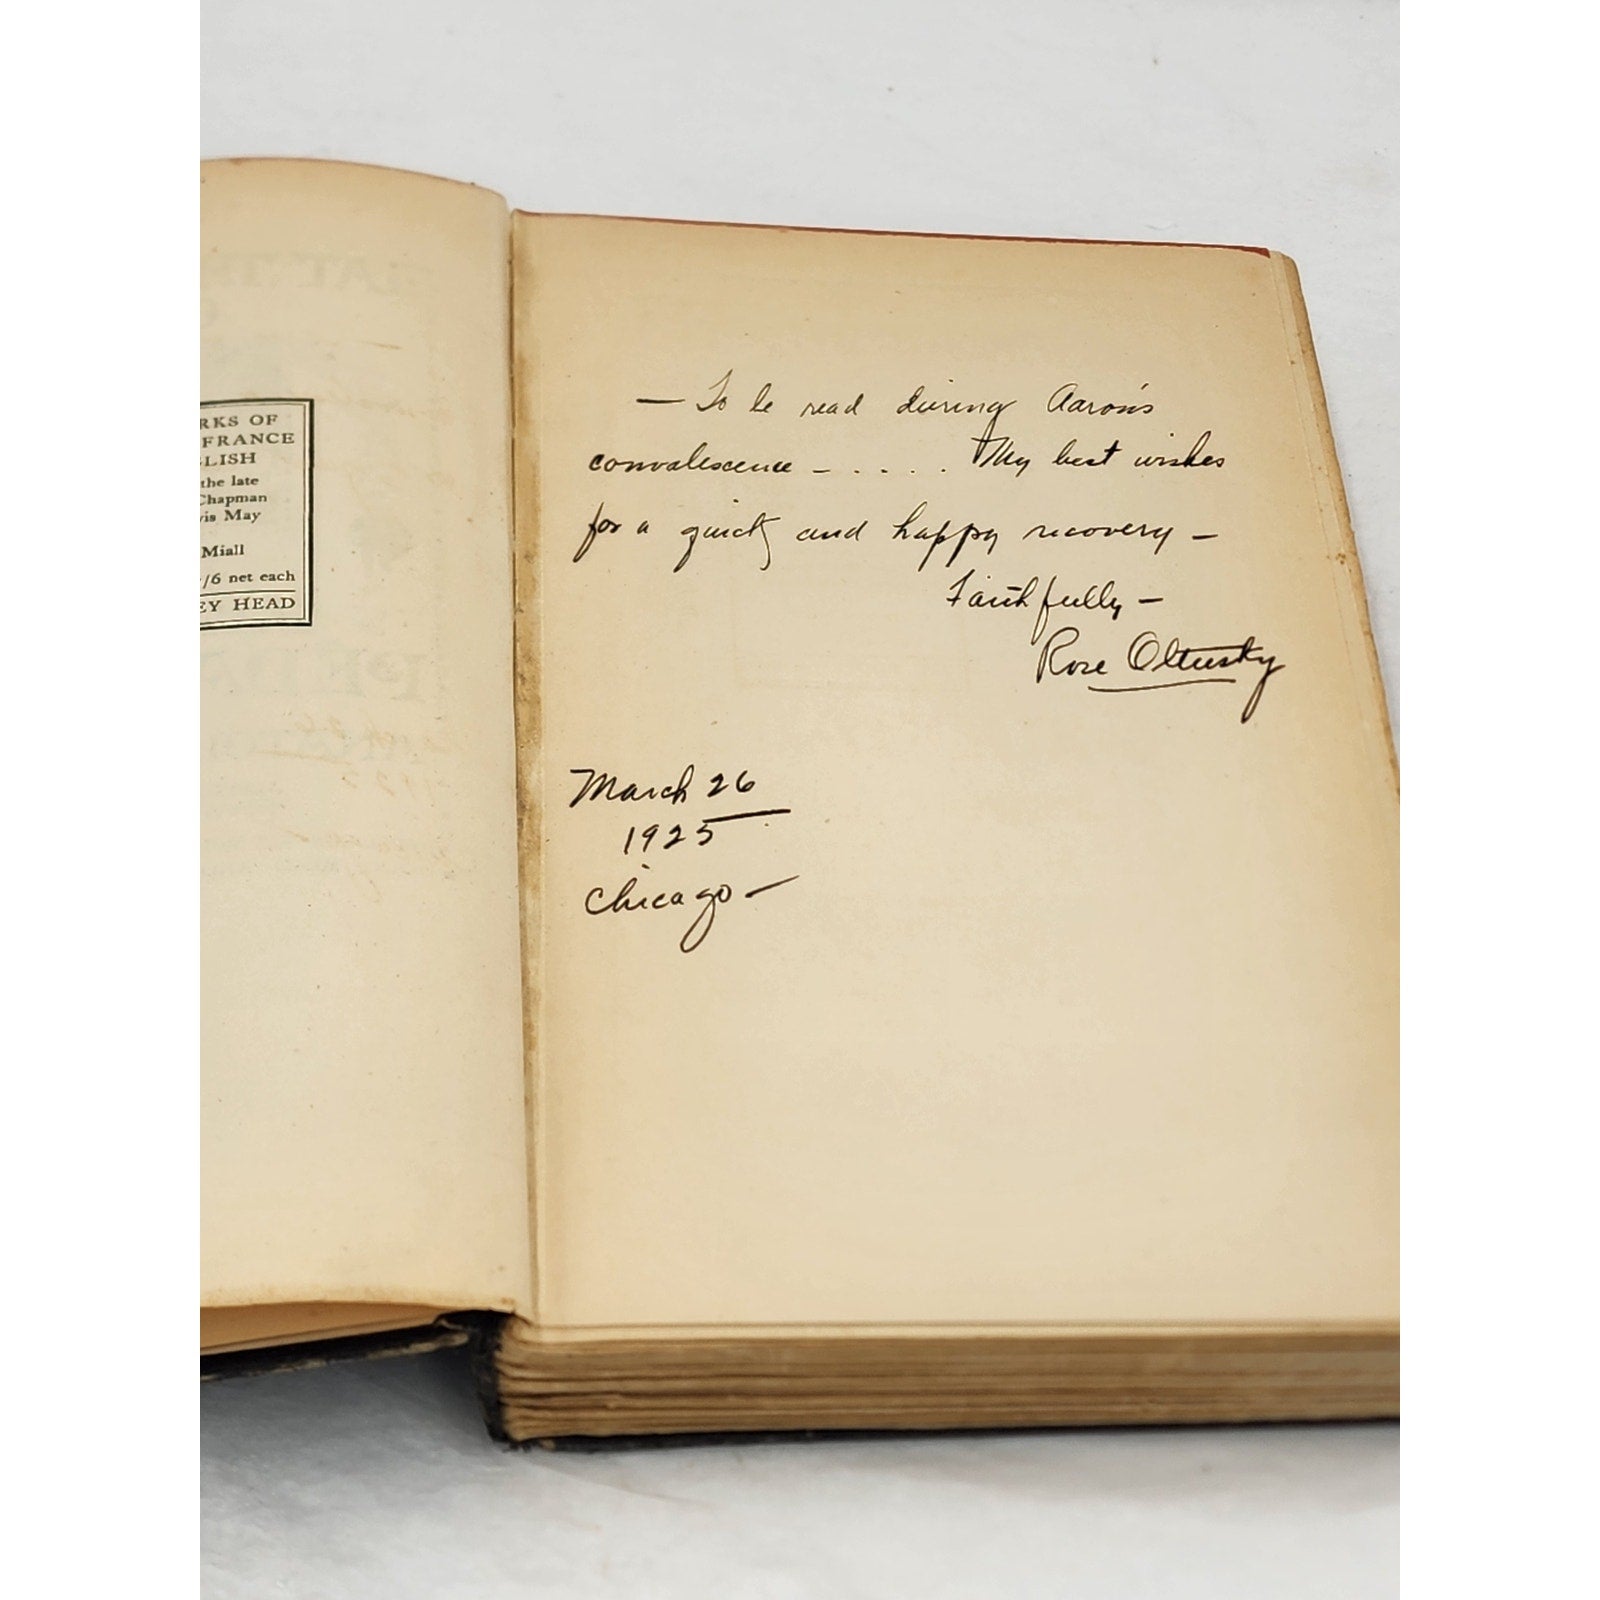 RKS OF
FRANCE
LISH
the late
Chapman
vis May
Miall
/6 net each
EY HEAD
— To be read during Aaron's
convalescence — . . . . . My best wishes
for a quick and happy recovery —
Faithfully —
Rose Oltusky
March 26
1925
Chicago —